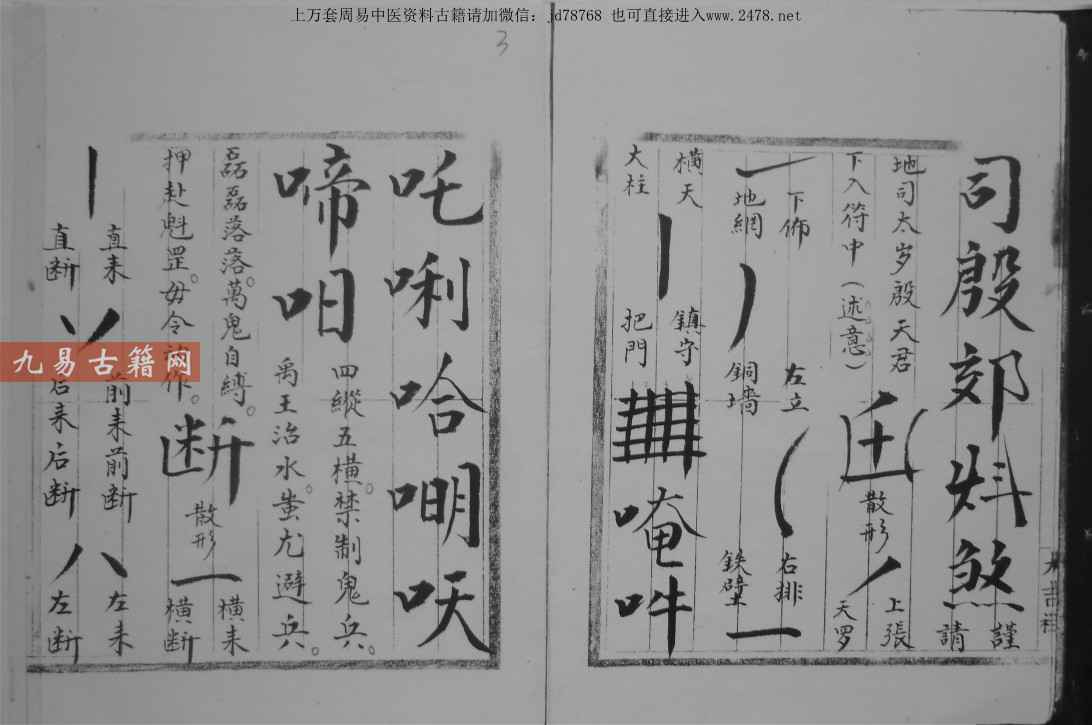 上万套周易中医资料古籍请加微信：jd78768 也可直接进入www.2478.net
3
司殷郊炓煞
謹請
地司太岁殷天君
下入符中（述意）
散形
上張
天罗
下佈
地網
左立
銅墻
右排
鉄壁
橫天
大柱
鎮守
把門
唵吽
吒唎哈嘲吠
啼呾
四縱五橫禁制鬼兵。
禹王治水蚩尤避兵。
磊磊落落。萬鬼自縛。
押赴魁罡。毋令 作。
断
散形
一
橫来
橫断
直来
直断
前来前断
后来后断
左来
左断
九易古籍网